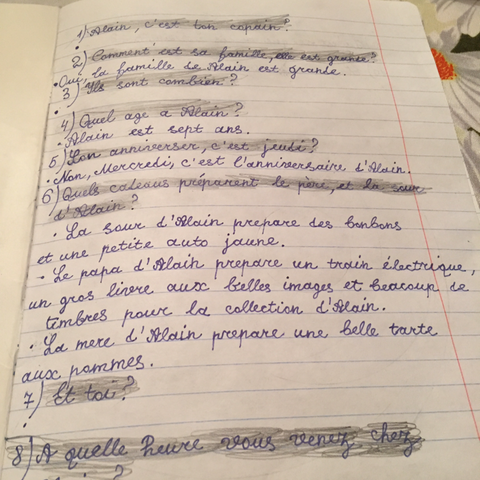 1) Alain, c'est ton copain?
2) Comment est sa famille, elle est grande?
• Oui, la famille de Alain est grande.
3) Ils sont combien?
4) Quel age a Alain?
• Alain est sept ans.
5) Son anniverser, c'est jeudi?
• Non, Mercredi, c'est l'anniversaire d'Alain.
6) Quels cadeaus préparent le père, et la sour
d'Alain?
• La sour d'Alain prepare des bonbons
et une petite auto jaune.
• Le papa d'Alain prepare un train électrique,
un gros livre aux belles images et beacoup de
tembres pour la collection d'Alain.
• La mere d'Alain prepare une belle tarte
aux pommes.
7) Et toi?
8) A quelle heure vous venez chez